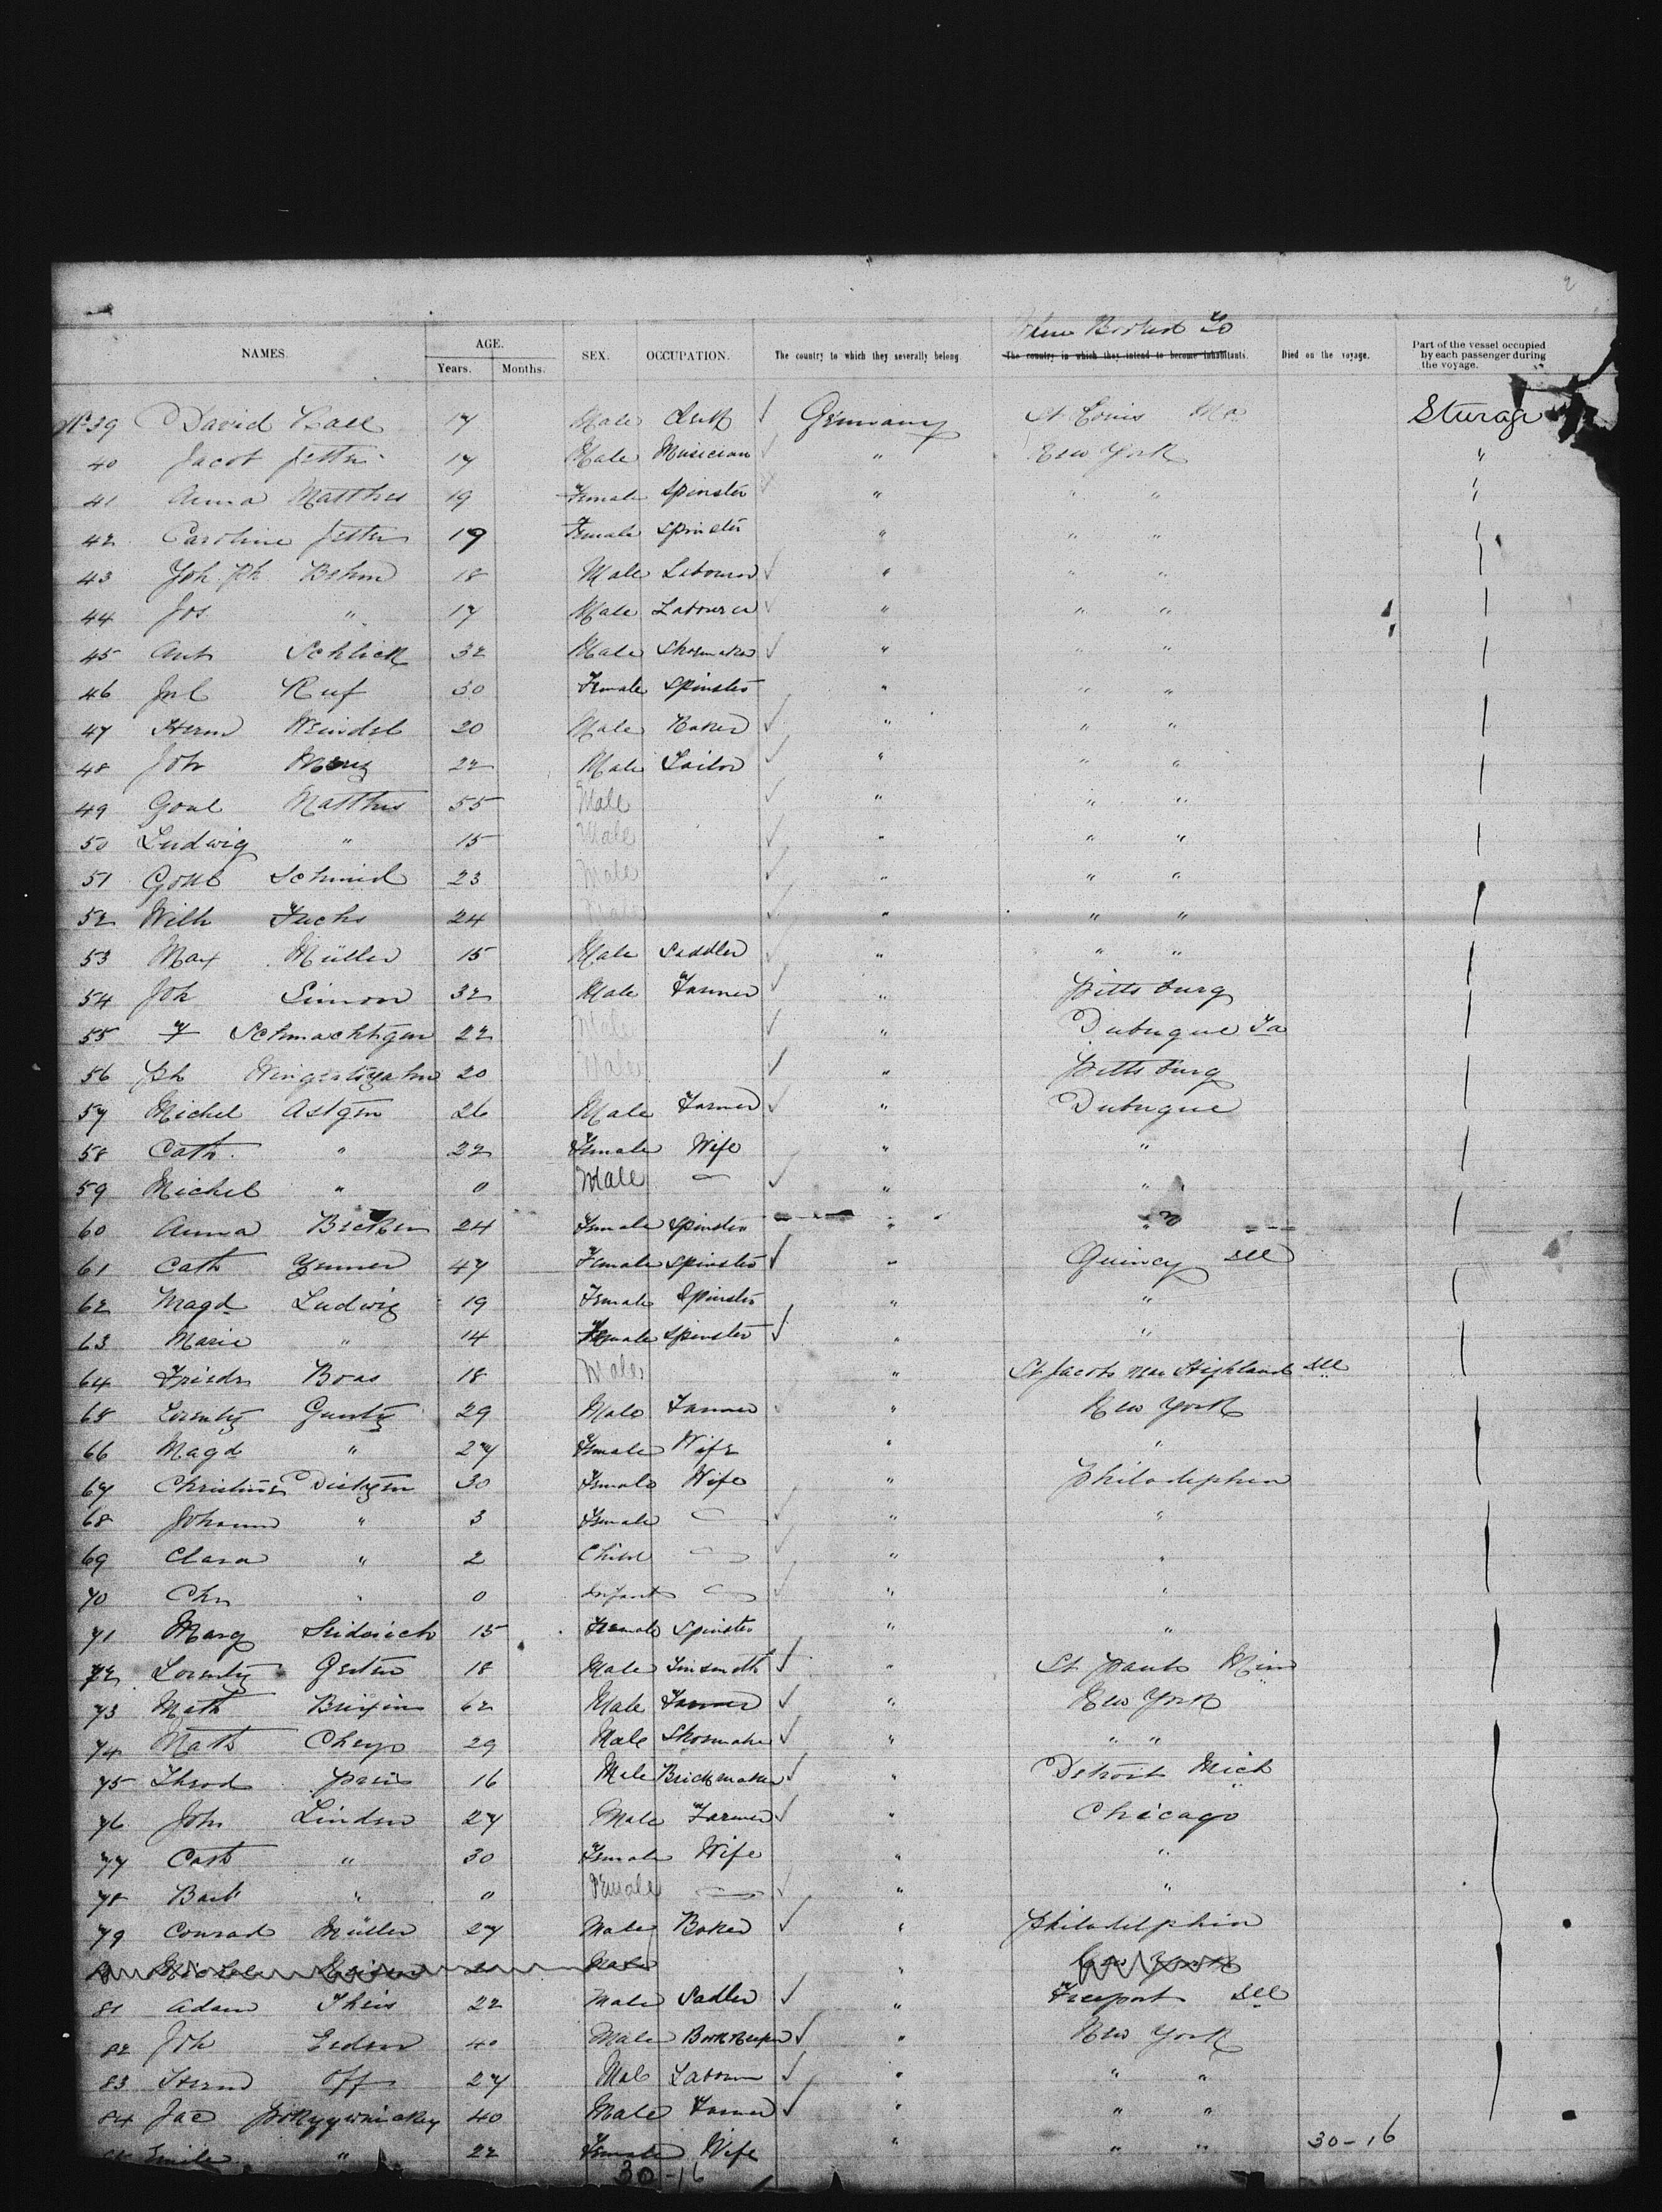 2
Where Booked To
NAMES. AGE. SEX. OCCUPATION. The country to which they severally belong. The country in which they intend to become inhabitants. Died on the voyage. Part of the vessel occupied by each passenger during the voyage.
Years. Months.
No 39 David 17 Male Clerk ✓ Germany St Louis Mo Sturage
40 Jacob Jetter 17 Male Musician ✓ " New York "
41 Anna Matthes 19 Female Spinster ✓ " " " "
42 Caroline Jetter 19 Female Spinster " " "
43 Joh Ph Behm 18 Male Labourer ✓ " " "
44 Jos " 17 Male Labourer ✓ " " "
45 Ant Schlick 32 Male Shoemaker ✓ " " "
46 Jul Ruf 30 Female Spinster " " "
47 Herm Weindel 20 Male Baker ✓ " " "
48 Joh 22 Male Tailor ✓ " " "
49 Matthes 55 Male ✓ " " "
50 Ludwig " 15 Male ✓ " " "
51 Gottl Schmid 23 Male ✓ " " "
52 Wilh Fuchs 24 Male ✓ " " "
53 Max Müller 15 Male Saddler ✓ " " "
54 Joh Simon 32 Male Farmer ✓ " Pittsburg
55 F Schmachtgen 22 Male ✓ " Dubuque Ia
56 Ph 20 Male ✓ " Pittsburg
57 Michel Astgen 26 Male Farmer ✓ " Dubuque
58 Cath " 22 Female Wife " "
59 Michel " 0 Male — ✓ " "
60 Anna Becker 24 Female Spinster " "
61 Cath 47 Female Spinster ✓ " Quincy Ill
62 Magd Ludwig 19 Female Spinster " "
63 Marie " 14 Female Spinster ✓ " "
64 Friedr Boas 18 Male " St Jacobs near Highland Ill
65 Lorentz Guntz 29 Male Farmer ✓ " New York
66 Magd " 27 Female Wife " "
67 Christine 30 Female Wife " Philadephia
68 Johann " 3 Female — ✓ " "
69 Clara " 2 Child — ✓ " "
70 Chr " 0 Infant — ✓ " "
71 Marg 15 Female Spinster " "
72 Lorentz 18 Male Tinsmith ✓ " St Pauls Minn
73 Math 62 Male Farmer ✓ " New York
74 Math 29 Male Shoemaker ✓ " " "
75 Theod 16 Male Brickmaker ✓ " Detroit Mich
76 John Linden 27 Male Farmer ✓ " Chicago
77 Cath " 30 Female Wife " "
78 Barb " 0 Female — ✓ " "
79 Conrad Müller 27 Male Baker ✓ " Philadelphia
Male "
81 Adam Theis 22 Male Sadler ✓ " Freeport Ill
82 Joh 40 Male Bookkeeper ✓ " New York
83 Herm Off 27 Male Labourer ✓ " " "
84 Jac 40 Male Farmer ✓ " " "
" 22 Female Wife " " " 30-16
30-16